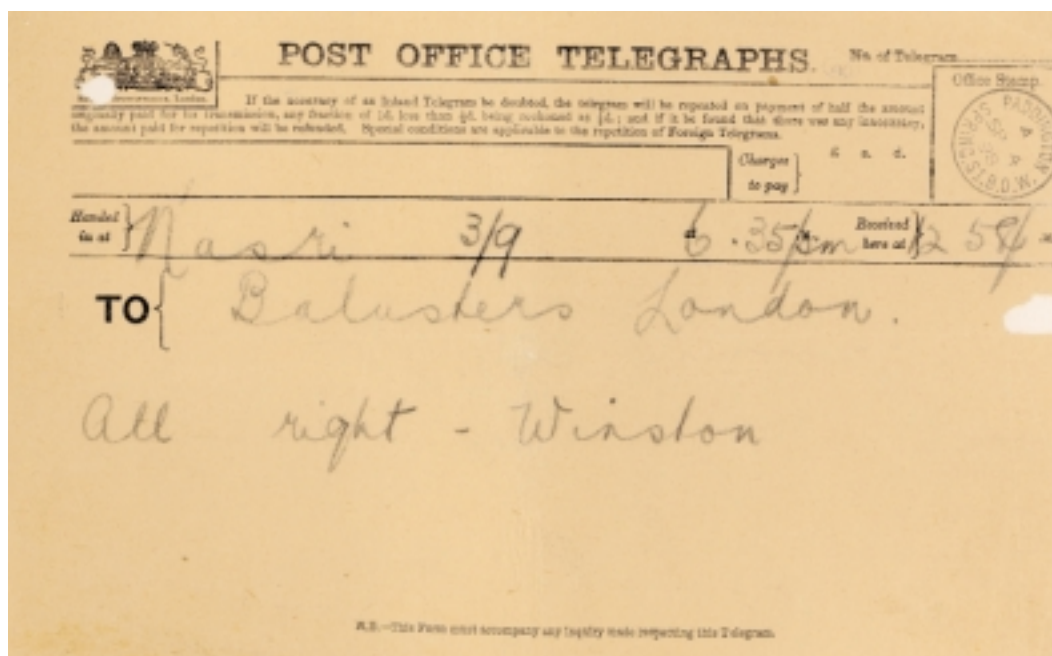 POST OFFICE TELEGRAPHS.
No. of Telegram
If the accuracy of an Inland Telegram be doubted, the telegram will be repeated on payment of half the amount
originally paid for its transmission, any fraction of 1d. less than ½d. being reckoned as ½d.; and if it be found that there was any inaccuracy,
the amount paid for repetition will be refunded. Special conditions are applicable to the repetition of Foreign Telegrams.
Office Stamp.
PADDINGTON
SPRING ST. B.O. W.
Charges
to pay
£ s. d.
Handed
in at
Nasri 3/9 at 6.35pm
Received
here at
12 58
TO
Balusters London.
All right - Winston
N.B.—This Form must accompany any inquiry made respecting this Telegram.